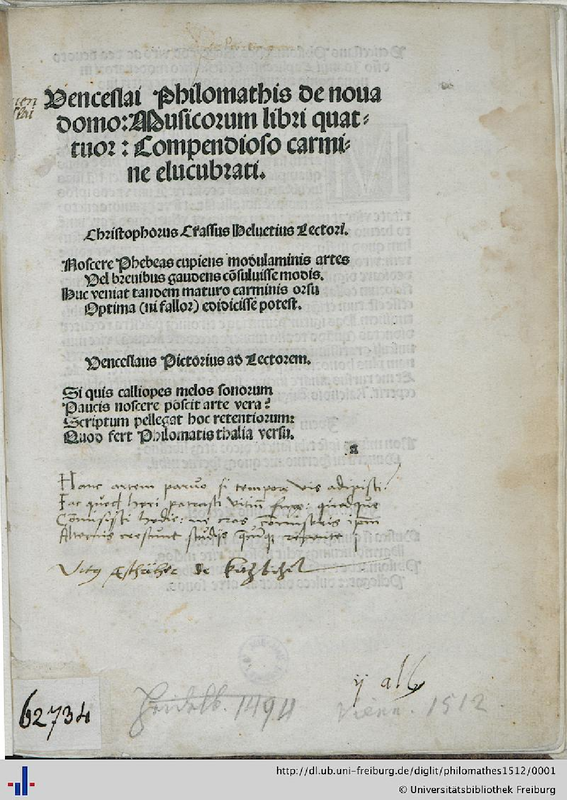 Venceslai Philomathis de noua
domo: Musicorum libri quat-
tuor: Compendioso carmi-
ne elucubrati.
Christophorus Crassus Helvetius Lectori.
Noscere Phebeas cupiens modulaminis artes
Vel breuibus gaudens cõsuluisse modis.
Huc veniat tandem maturo carminis orsu
Optima (ni fallor) edidicisse potest.
Venceslaus Pictorius ad Lectorem.
Si quis calliopes melos sonorum
Paucis noscere poscit arte vera?
Scriptum pellegat hoc retentiorum:
Quod fert Philomatis thalia versu.
a
Hanc artem paruo si tempore vis adipisci
Fac
hodie: ne cras
Alternis studijs
de
ij alb
62734
Heidelb. 1494
Vienn. 1512
http://dl.ub.uni-freiburg.de/diglit/philomathes1512/0001
© Universitätsbibliothek Freiburg